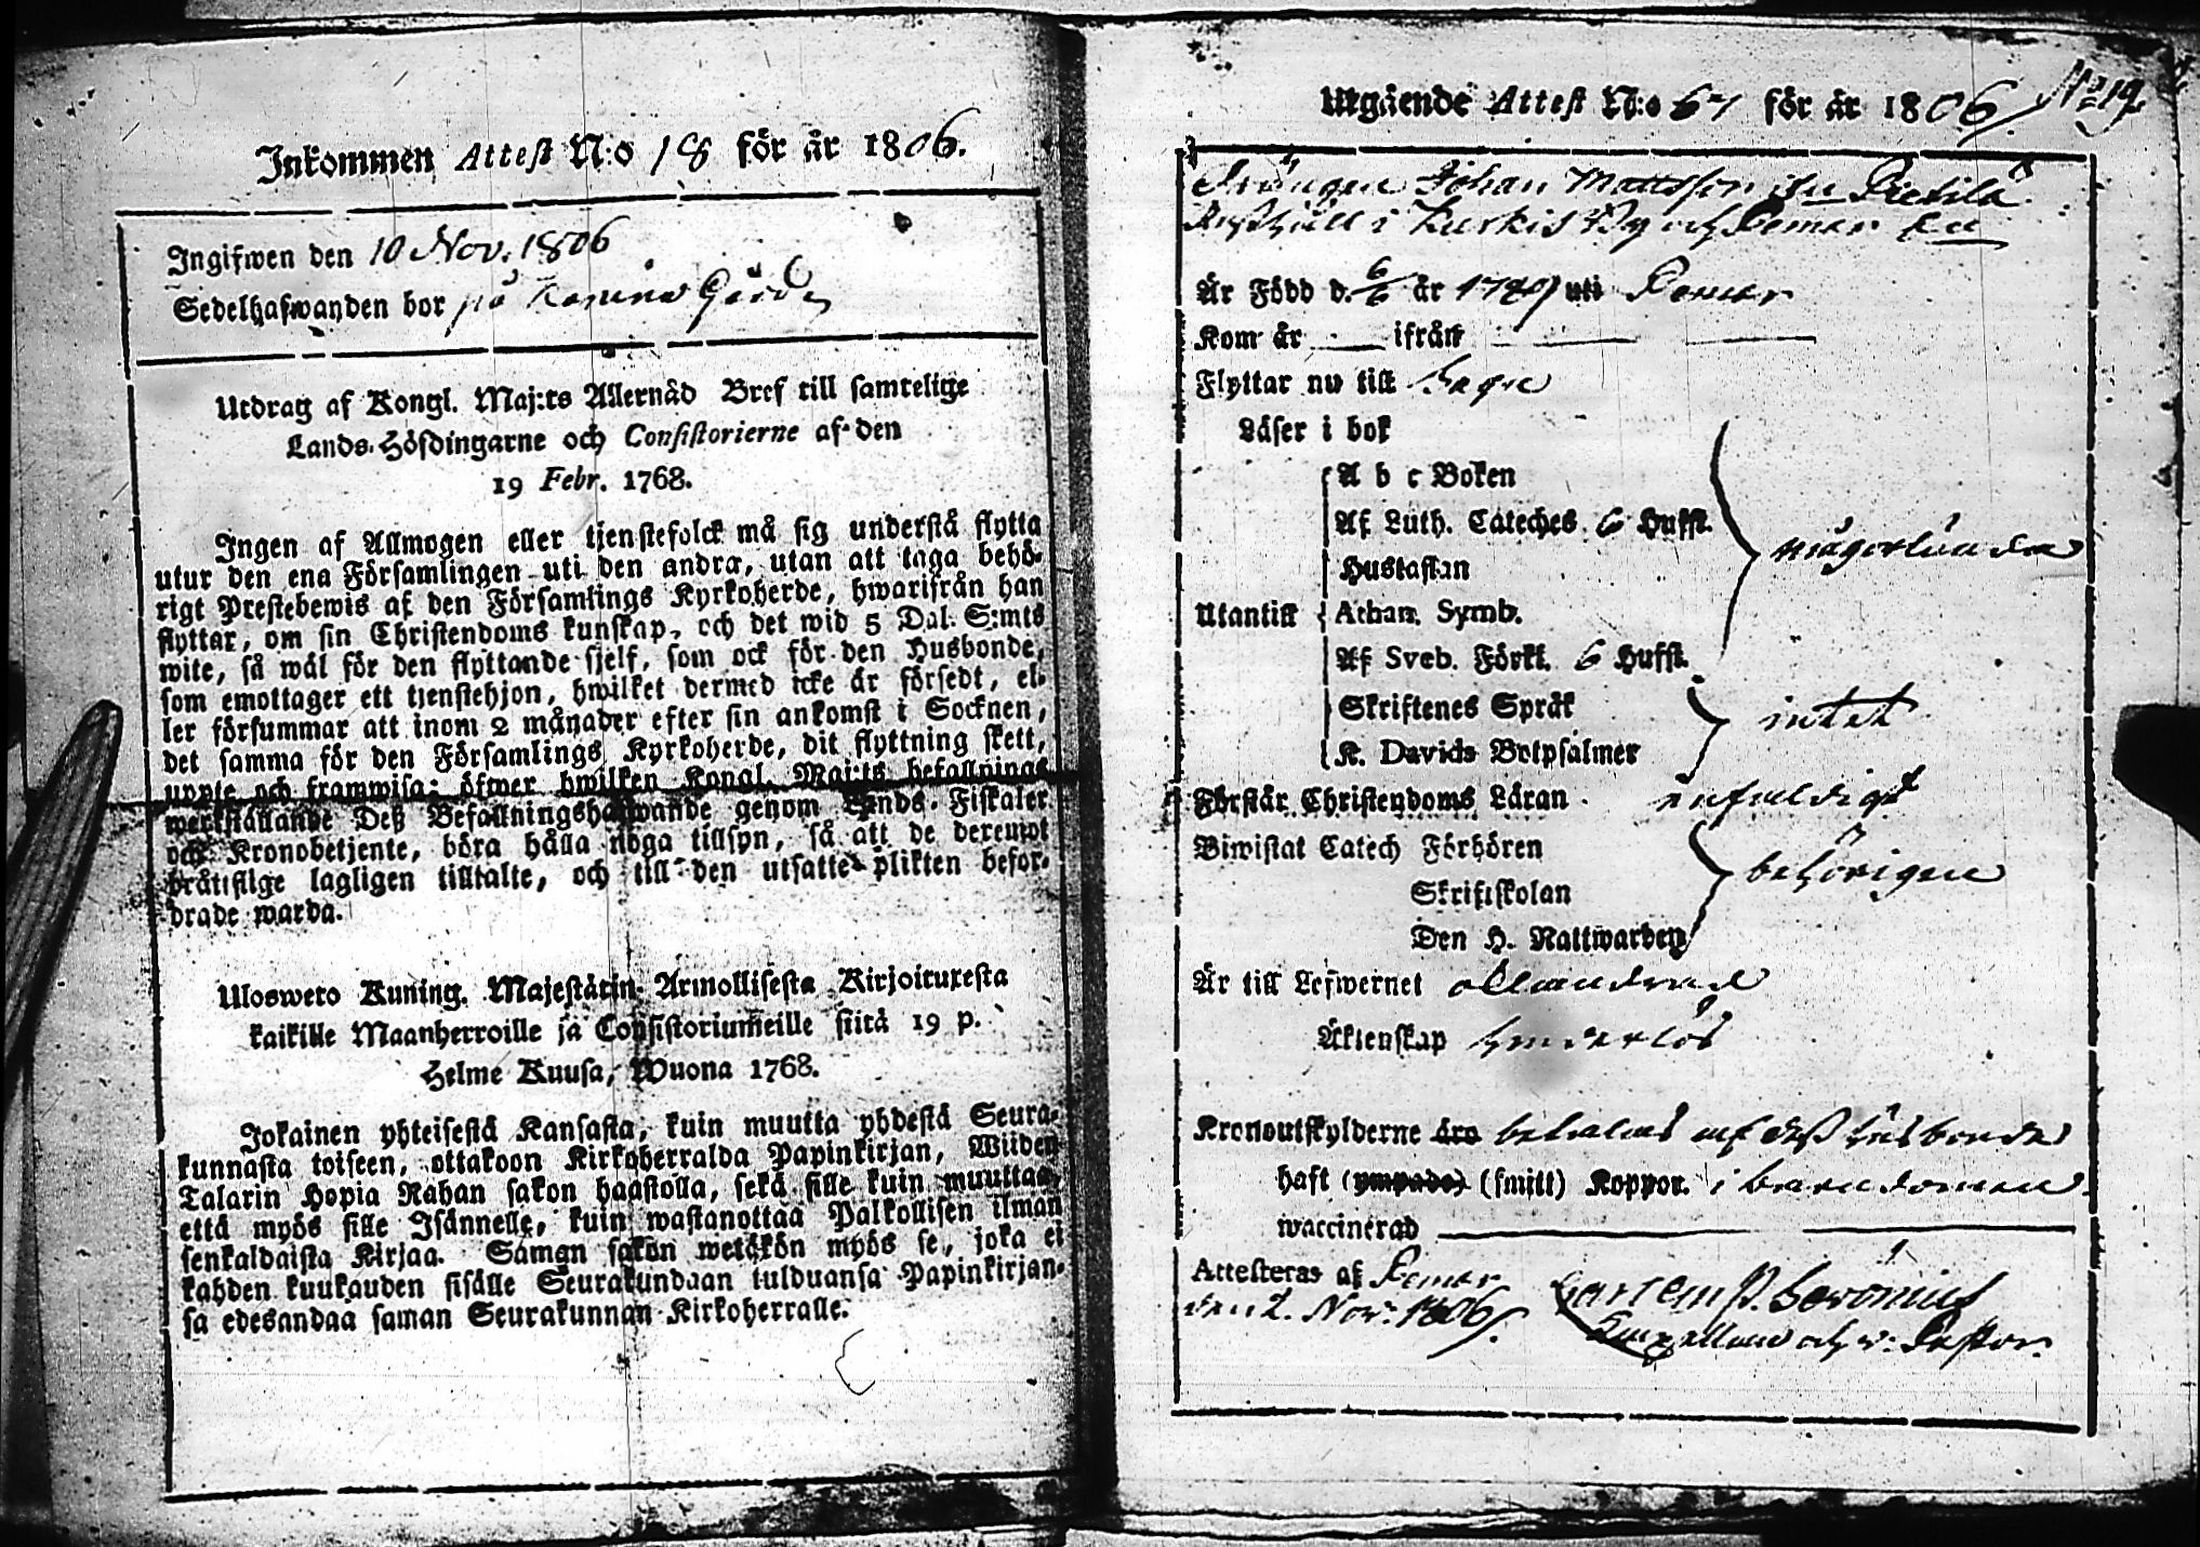 Inkommen Attest N:o 18 för år 1806.
Ingifwen den 10 Nov. 1806
Sedelhafwanden bor på Gård
Utdrag af Kongl. Maj:ts Allernåd Bref till samtelige
Lands-Höfdingarne och Consistorierne af den
19 Febr. 1768.
Ingen af Allmogen eller tjenstefolck må sig understå flytta
utur den ena Församlingen uti den andra, utan att taga behö-
rigt Prestebewis af den Församlings Kyrkoherde, hwarifrån han
flyttar, om sin Christendoms kunskap, och det wid 5 Dal. S:mts
wite, så wäl för den flyttande sjelf, som ock för den Husbonde,
som emottager ett tjenstehjon, hwilket dermed icke är försedt, el-
ler försummar att inom 2 månader efter sin ankomst i Socknen,
det samma för den Församlings Kyrkoherde, dit flyttning skett,
uppte och framwisa; öfwer hwilken Kongl. Maj:ts befallnings
werkställande Deß Befallningshafwande genom Lands-Fiskaler
och Kronobetjente, böra hålla noga tillsyn, så att de deremot
bråtislige lagligen tilltalte, och till den utsatte plikten befor-
drade warda.
Uloswero Kuning. Majestätin Armollisesta Kirjoituxesta
kaikille Maanherroille ja Consistoriumeille siitä 19 p.
Helme Kuusa, Wuona 1768.
Jokainen yhteisestä Kansasta, kuin muutta yhdestä Seura-
kunnasta toiseen, ottakoon Kirkoherralda Papinkirjan, Wiiden
Talarin Hopia Rahan sakon haastolla, sekä sille kuin muuttaa,
että myös sille Isännelle, kuin wastanottaa Palkollisen ilman
senkaldaista Kirjaa. Saman sakon wetäkön myös se, joka ei
kahden kuukauden sisälle Seurakundaan tulduansa Papinkirjan-
sa edesandaa saman Seurakunnan Kirkoherralle.
Utgående Attest N:o 67 för år 1806. No 19.
Drängen Johan Mattsson ifrån Pietilä
Rusthåll i Kurkis By och Pemar
Är Född d. 6/6 år uti Pemar
Kom år ifrån
Flyttar nu till
Läser i bok
A b c Boken
Af Luth. Cateches. 6 Hufst.
Hustaflan
någorlunda
Utantill Athan. Symb.
Af Sveb. Förkl. 6 Hufst.
Skriftenes Språk
intet
K. Davids Botpsalmer
Förstår Christendoms Läran enfaldigt
Biwistat Catech Förhören
behörigen
Skriftskolan
Den H. Nattwarden
Är till Lefwernet oklandrad
Äktenskap hinderlös
Kronoutskylderne äro betalas af deß husbonde
haft (ympade) (smitt) Koppor. i barndomen
waccinerad
Attesteras af Pemar
den 2. Nov: 1806.
Capellan och v: Pastor.